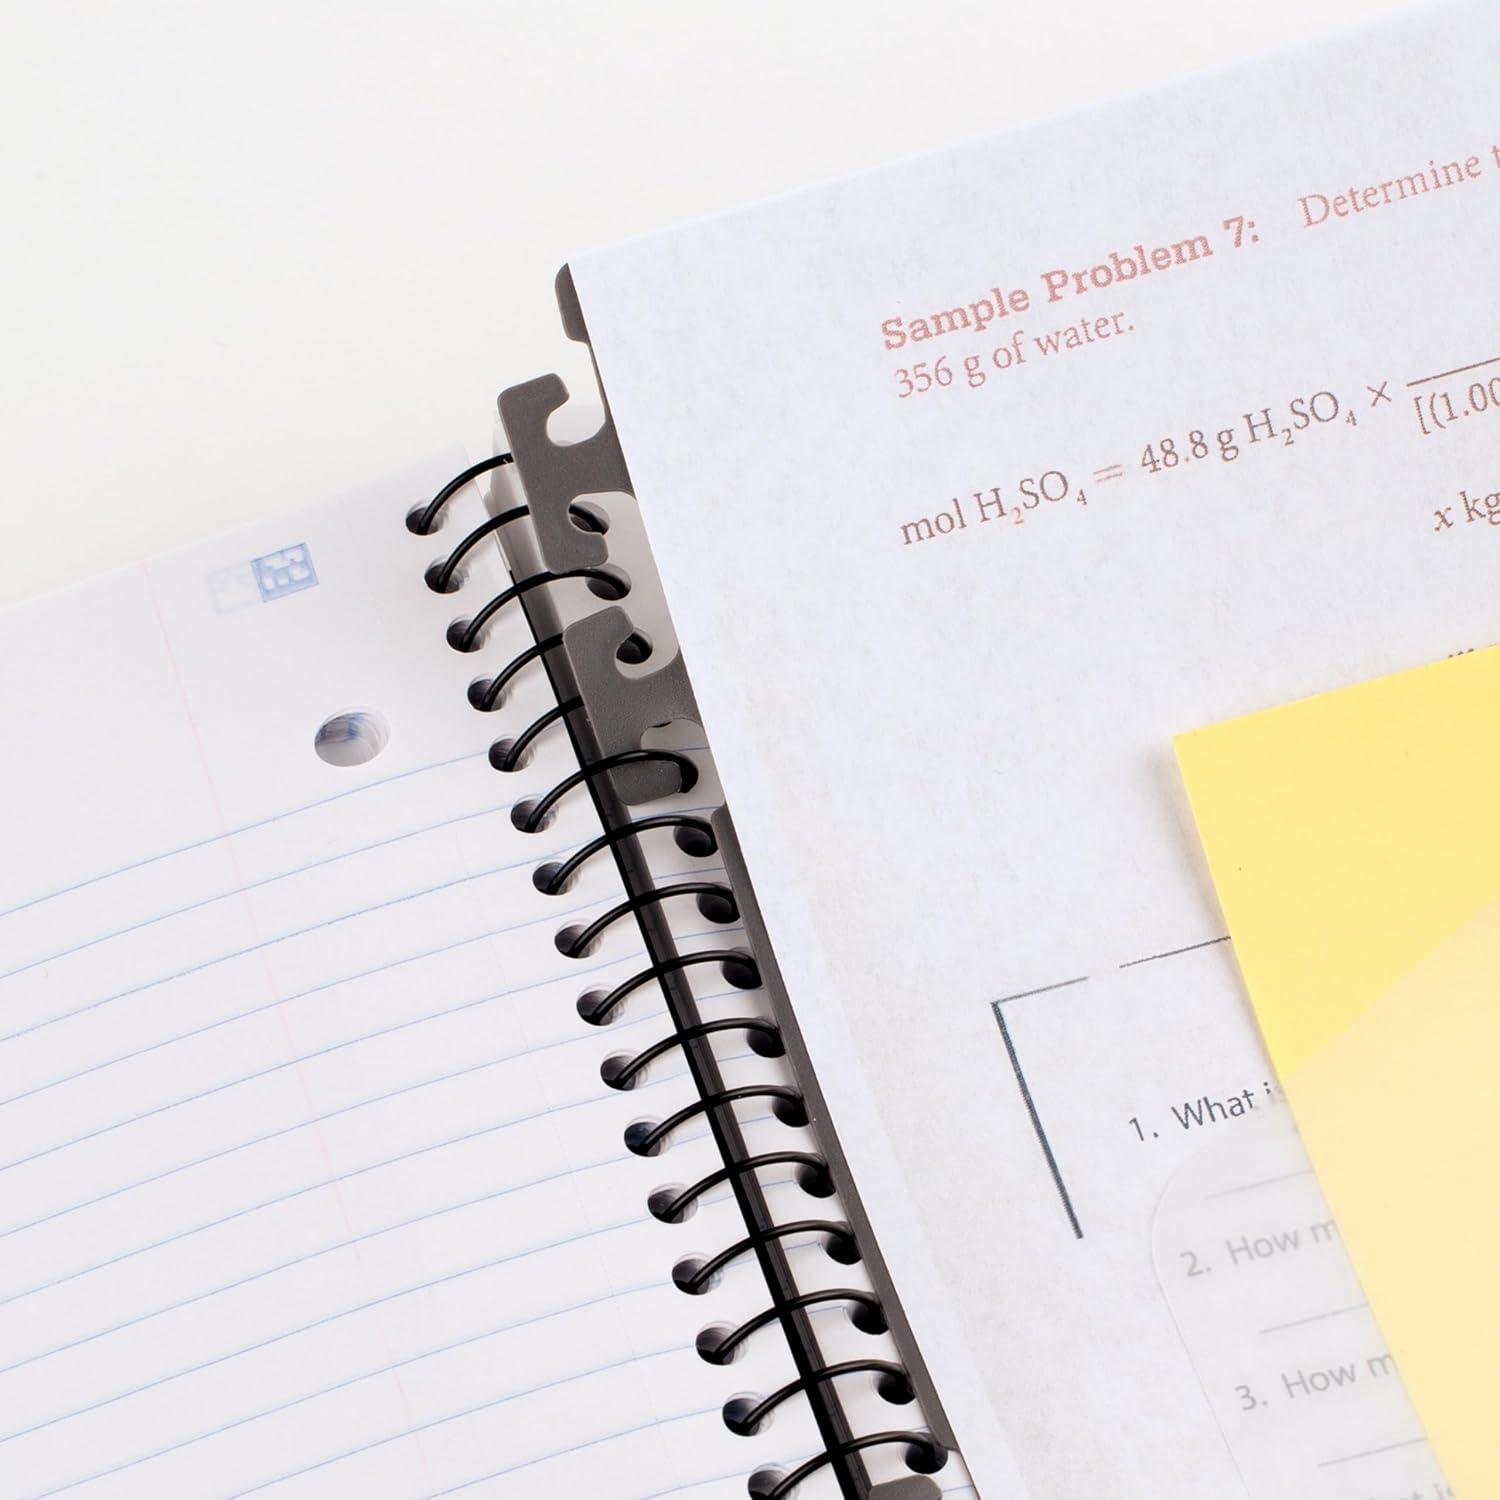 Sample Problem 7: Determine
356 g of water.
mol H₂SO₄ = 48.8 g H₂SO₄ ×
[(1.00
x kg
1. What
2. How
3. How